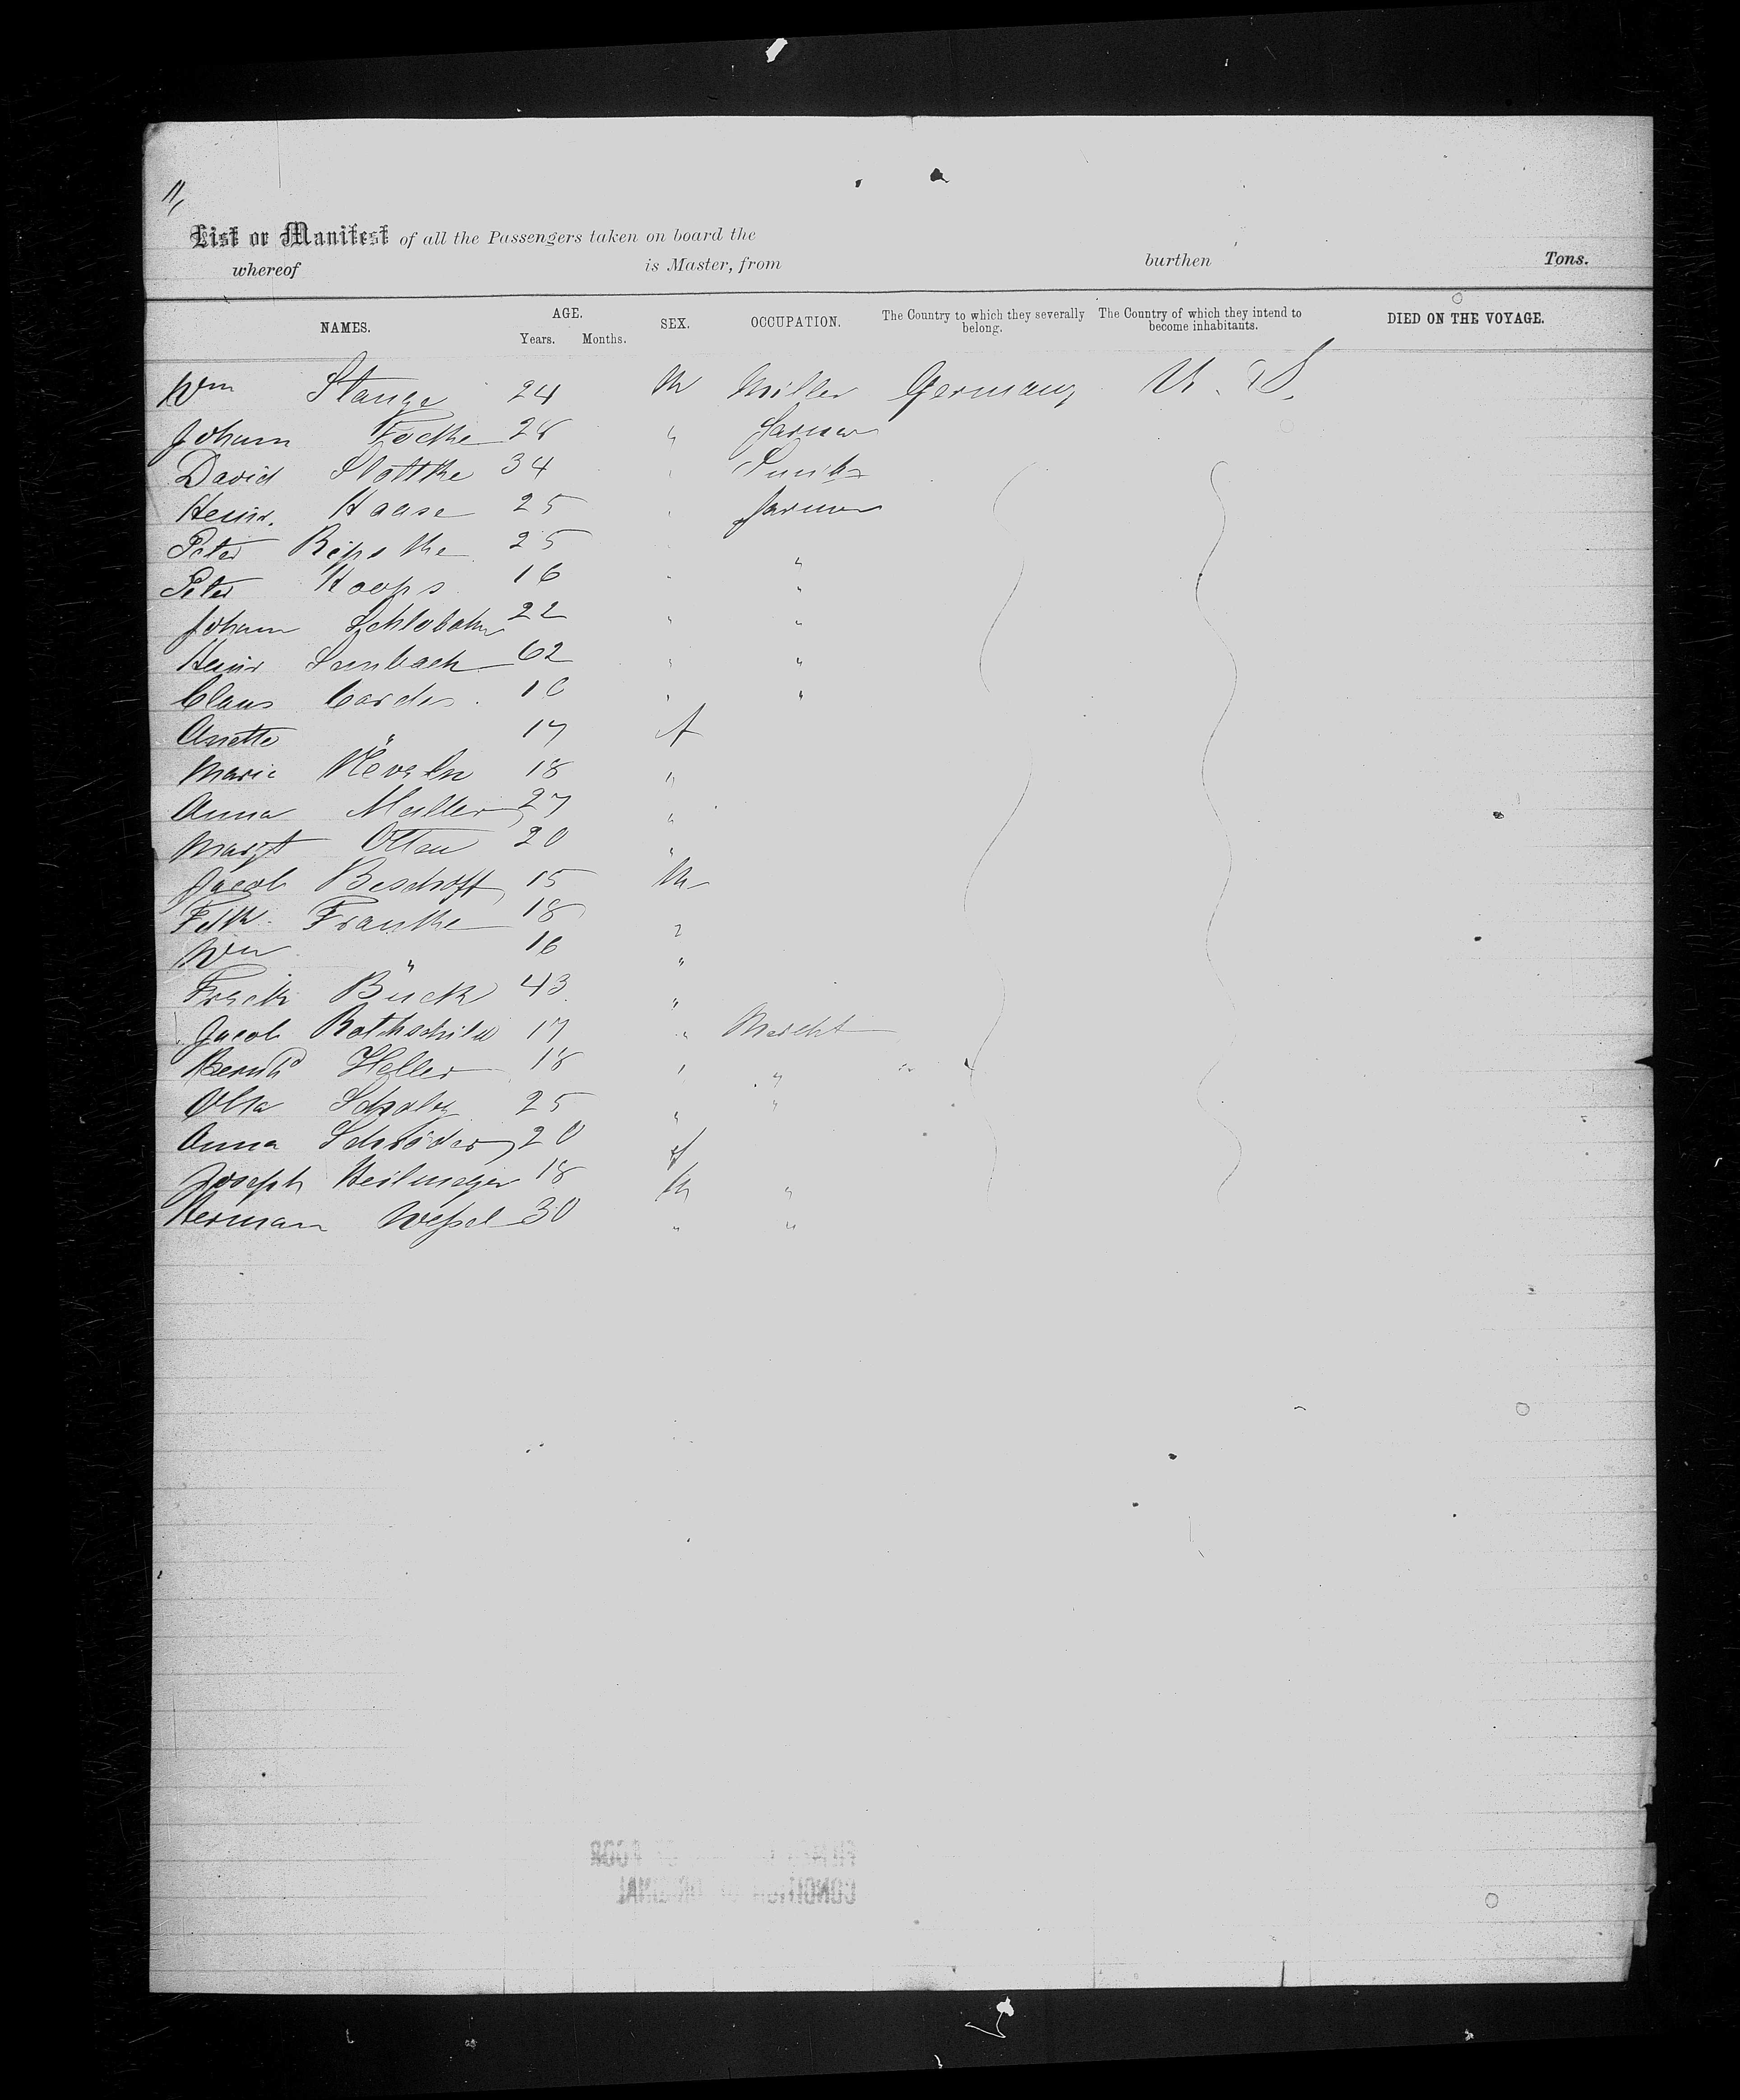 11/
List or Manifest of all the Passengers taken on board the
whereof is Master, from burthen Tons.
NAMES. AGE. Years. Months. SEX. OCCUPATION. The Country to which they severally belong. The Country of which they intend to become inhabitants. DIED ON THE VOYAGE.
Wm Stange 24 M Miller Germany U. S.
Johann Focke 28 " Farmer
David Slottke 34 "
Heinr. Haase 25 " Farmer
Peter 25 " "
Peter Koops 16 " "
Johann Schlobohm 22 " "
Heinr 62 " "
Claus Cordes 16 " "
Anette " 17 f
Marie 18 "
Anna Muller 27 "
Margt Otten 20 "
Jacob Bischoff 15 M
Franke 18 "
Wm " 16 "
Buck 43 "
Jacob Rothschild 17 " Mercht
Bernhd Heller 18 " "
Scholz 25 " "
Anna Schröder 20 f
Joseph Heilmeyer 18 M "
Herman Weſsel 30 " "
CONDITION OF ORIGINAL